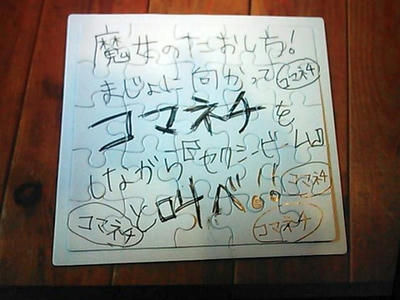 魔女のたおし方!
まじょに向かって コマネチ
コマネチを
しながら『セクシービーム』
と叫べ!! コマネチ
コマネチ コマネチ